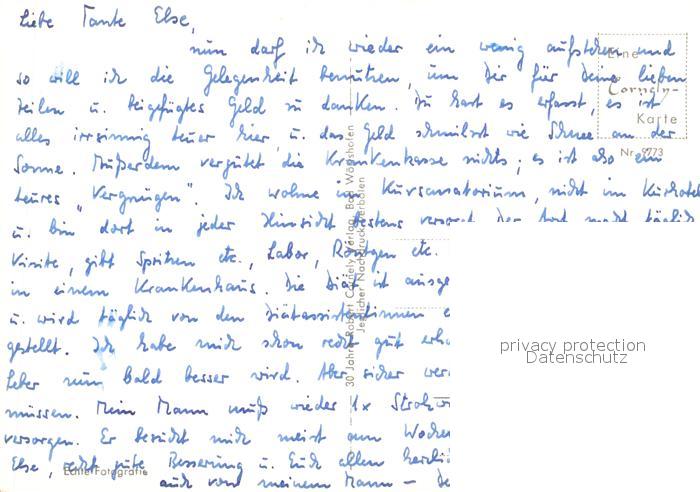 Liebe Tante Else,
nun darf ich wieder ein wenig aufstehen und
so will ich die Gelegenheit benutzen, um Dir für Deine lieben
Zeilen u. beigefügtes Geld zu danken. Du hast es erfasst, es ist
alles irrsinnig teuer hier, u. das Geld schmilzt wie Schnee an der
Sonne. Außerdem vergütet die Krankenkasse nichts; es ist also ein
teures „Vergnügen". Ich wohne im Kursanatorium, nicht im Kurhotel
u. bin dort in jeder Hinsicht bestens versorgt. Der Arzt macht täglich
Visite, gibt Spritzen etc., Labor, Röntgen etc.
in einem Krankenhaus. Die Diät ist ausge
u. wird täglich von den Diätassistentinnen
gestellt. Ich habe mich schon recht gut erho
Leber nun bald besser wird. Aber sicher wer
müssen. Mein Mann muß wieder 1x
versorgen. Er besucht mich meist am Wochen
Else, recht gute Besserung u. Euch allen herzli
auch von meinem Mann – De
Eine
Cornely-
Karte
Nr. 9773
30 Jahre Robert Cornely Verlag, Bad Wörishofen
Jeglicher Nachdruck verboten
Echte Fotografie
privacy protection
Datenschutz